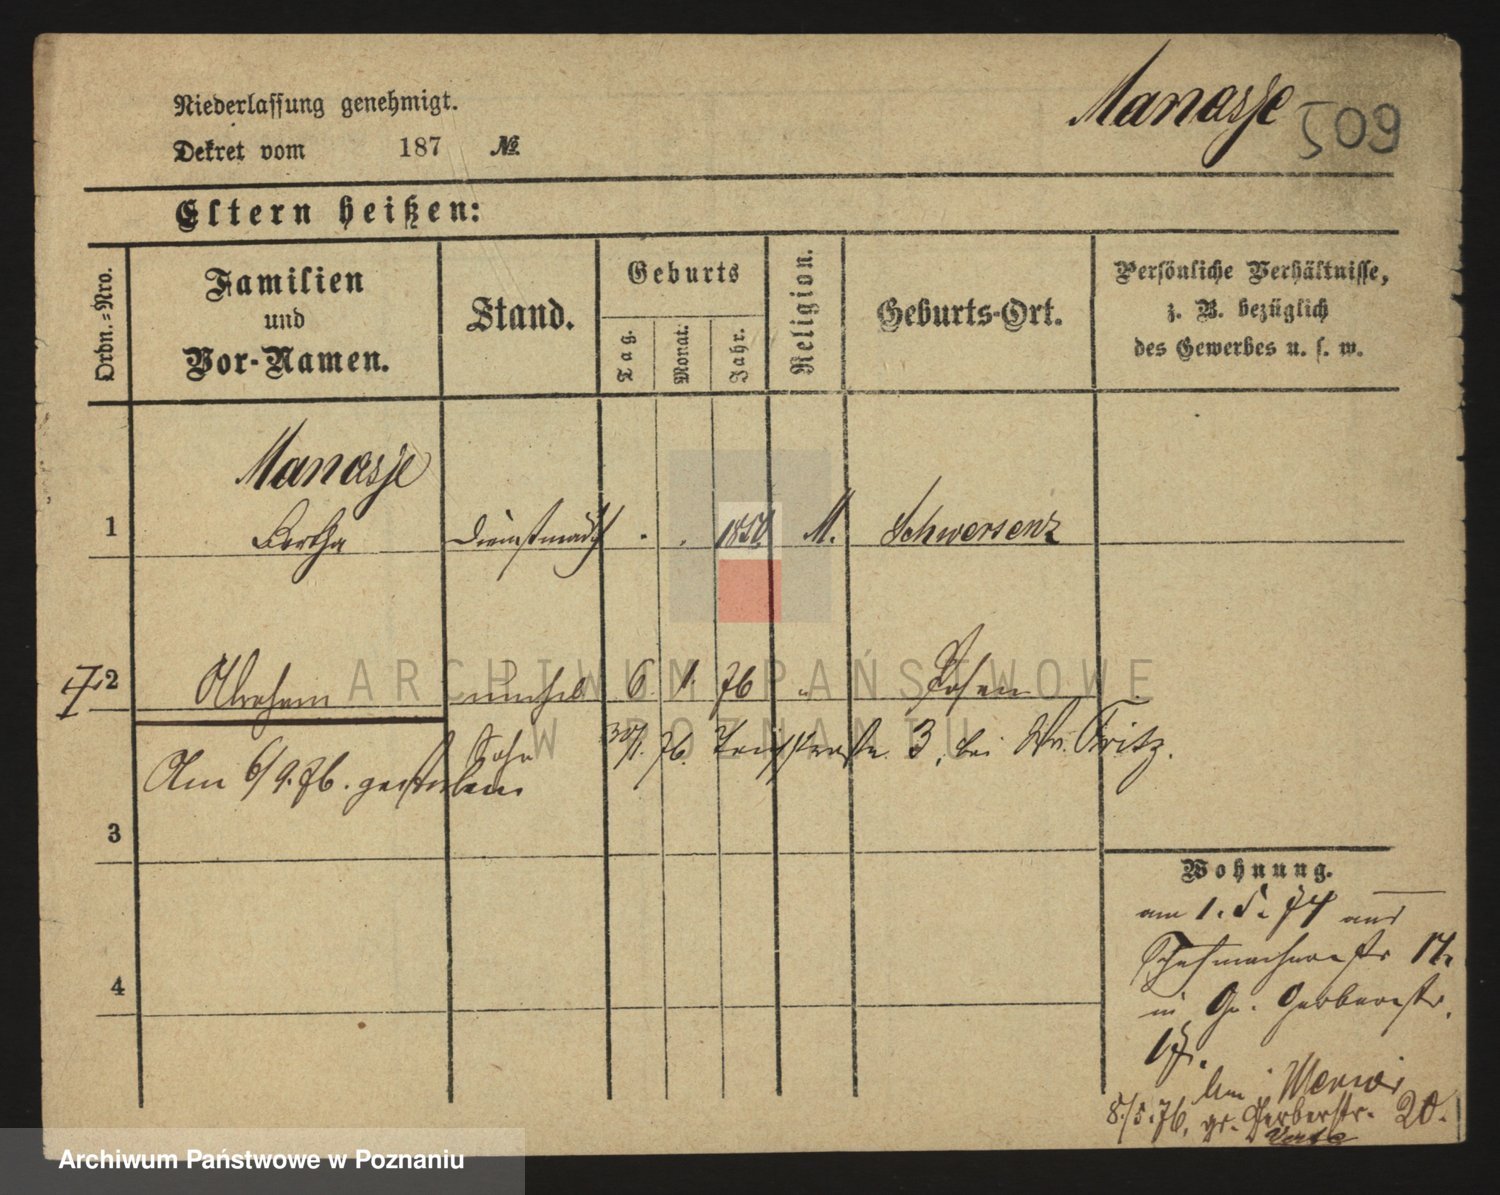 Niederlassung genehmigt.
Manasse 509
Dekret vom 187 №
Eltern heißen:
Ordn.=Nro.
Familien
und
Vor-Namen.
Stand.
Geburts
Tag.
Monat.
Jahr.
Religion.
Geburts-Ort.
Persönliche Verhältnisse,
z. B. bezüglich
des Gewerbes u. s. w.
Manasse
1 Bertha Dienstmädch . . 1850 M. Schwersenz
2 Abraham unehel 6. 1. 76 " Posen
Sohn 30/1. 76. Teichstraße 3, bei Fritz.
Am 6/9. 76. gestorben
3
Wohnung.
am 1. 5. 74 aus
Schuhmacherstr 17.
4
in Gr. Gerberstr.
17.
bei
8./5. 76, gr. Gerberstr. 20.
Verte
ARCHIWUM PAŃSTWOWE
W POZNANIU
Archiwum Państwowe w Poznaniu